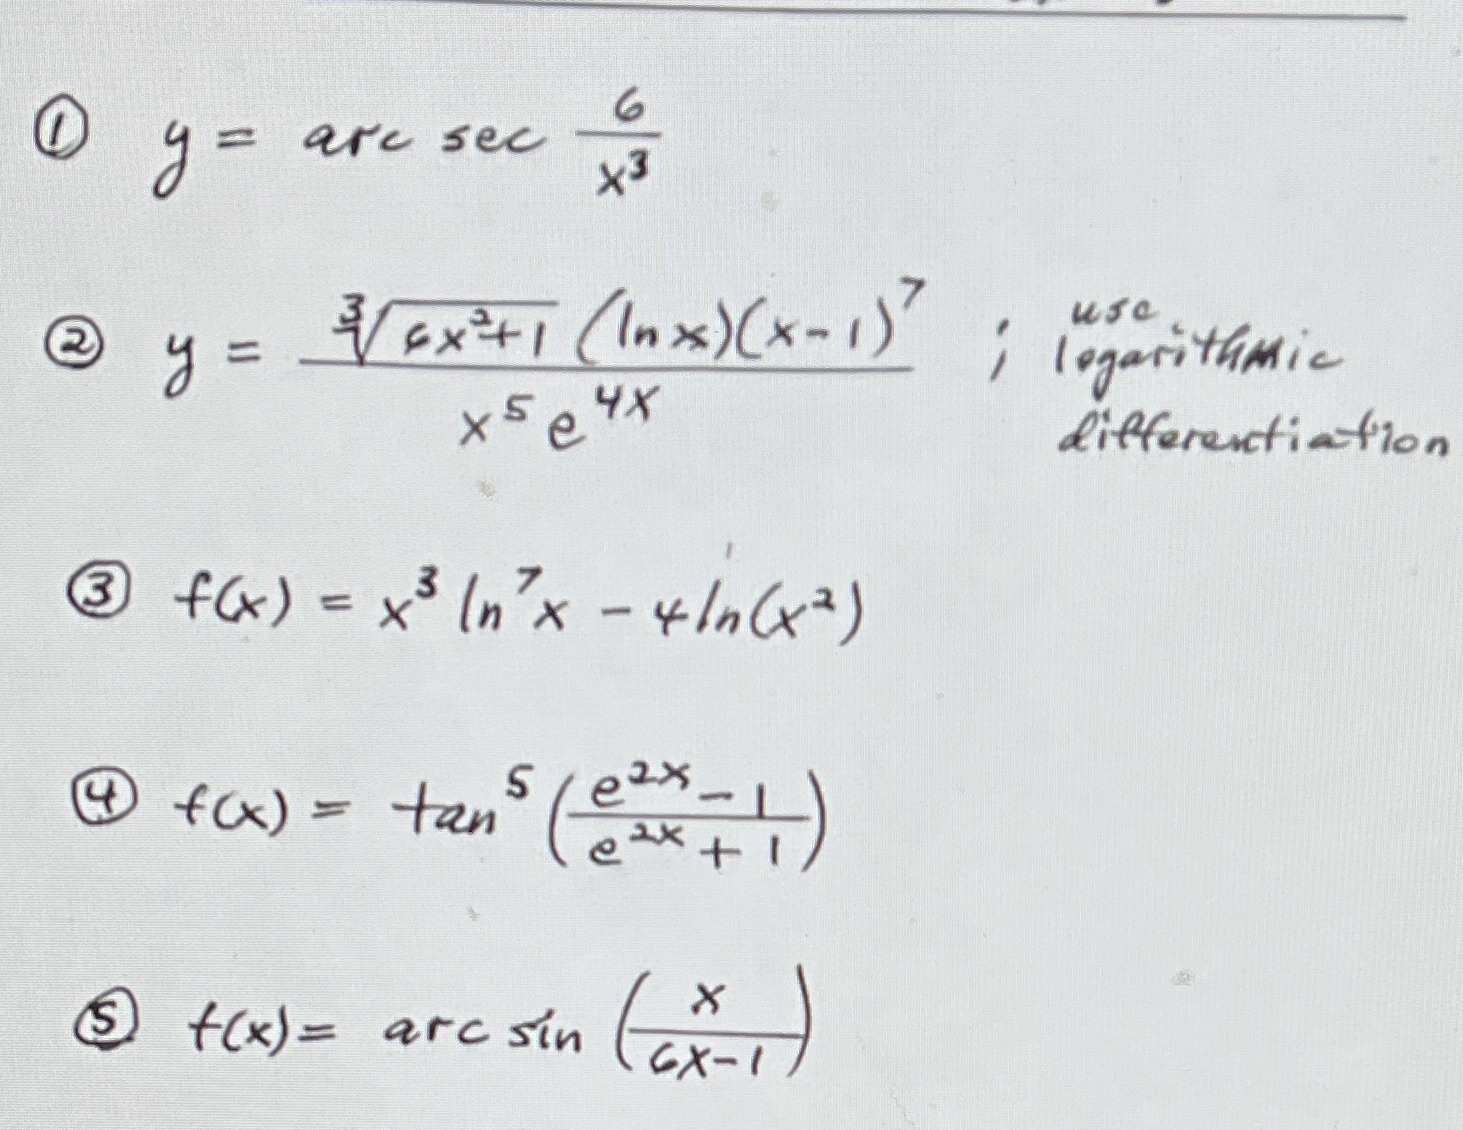 ① y = arc sec 6/x³
② y = ∛(6x²+1) (ln x)(x-1)⁷ / x⁵ e⁴ˣ ; use logarithmic differentiation
③ f(x) = x³ ln⁷x - 4 ln(x²)
④ f(x) = tan⁵ (e²ˣ - 1 / e²ˣ + 1)
⑤ f(x) = arc sin (x / 6x-1)